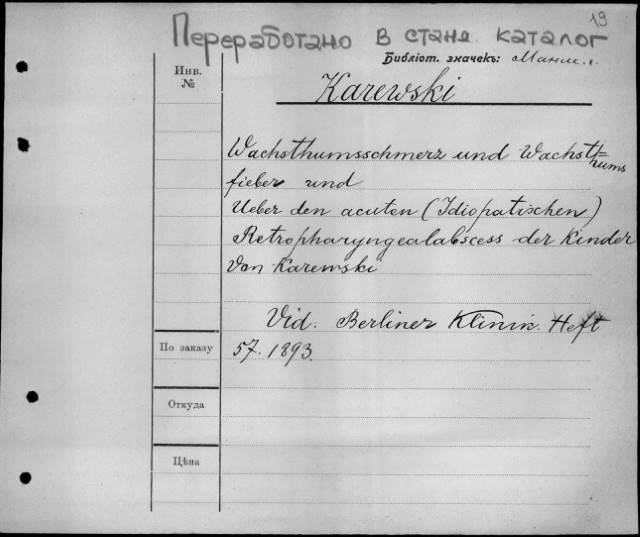 19
Переработано в стане. каталог
Библіот. значекъ:
Инв.
№
Karewski
Wachsthumsschmerz und Wachst=
hums
fieber und
Ueber den acuten (Idiopatischen)
Retropharyngealabscess der Kinder
Von Karewski
Vid. Berliner Klinik. Heft
По заказу
57. 1893.
Откуда
Цѣна